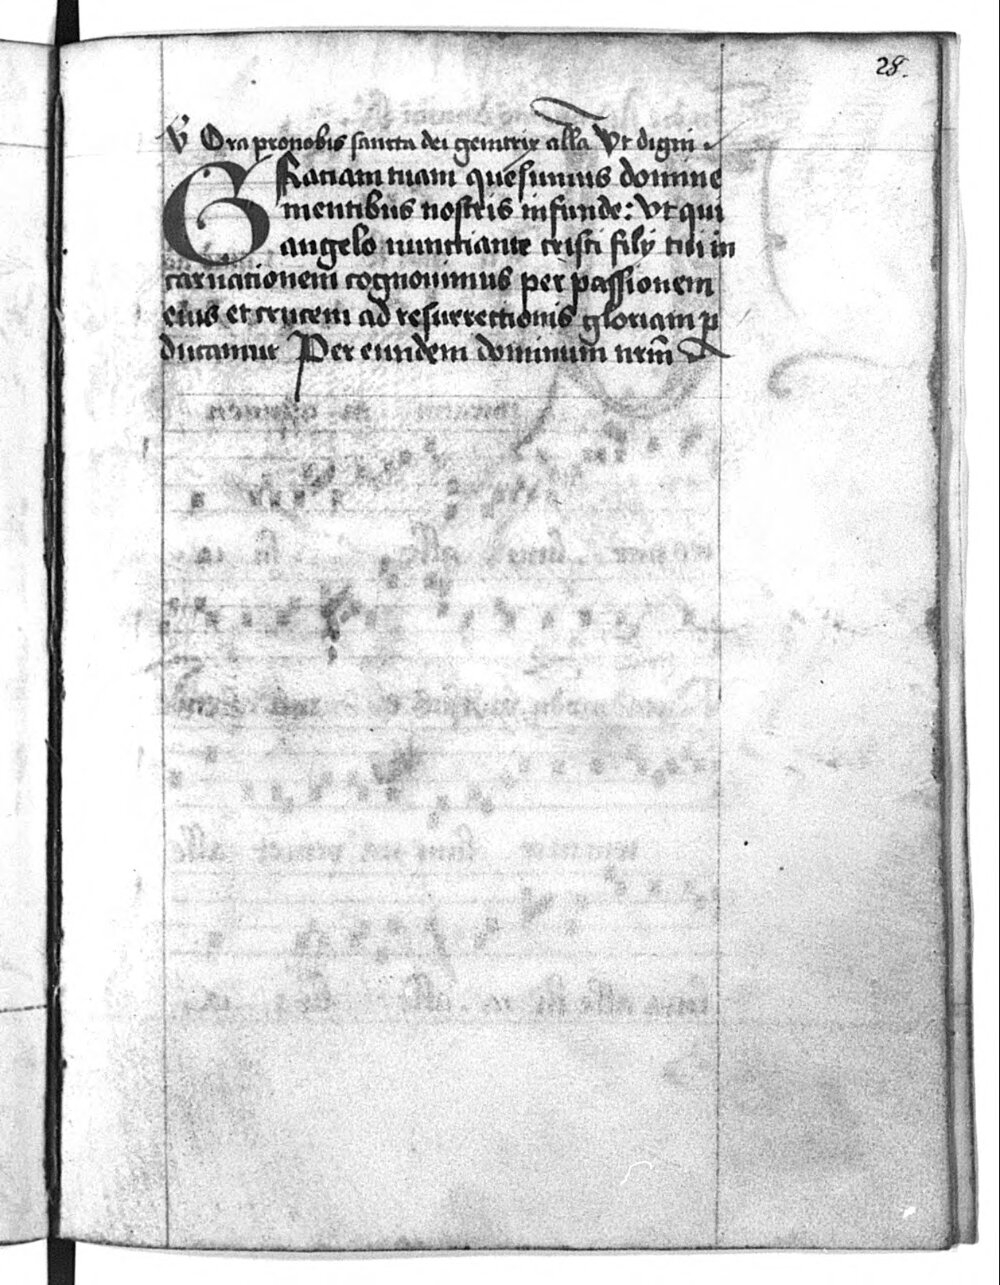 28.
V Ora pronobis sancta dei genitrix alla Vt digni
GRatiam tuam quesumus domine
mentibus nostris infunde: Vt qui
angelo nunctiante cristi filÿ tui in
carnationem cognouimus per passionem
eius et crucem ad resurrectionis gloriam p
ducamur Per eundem dominum nrm̄